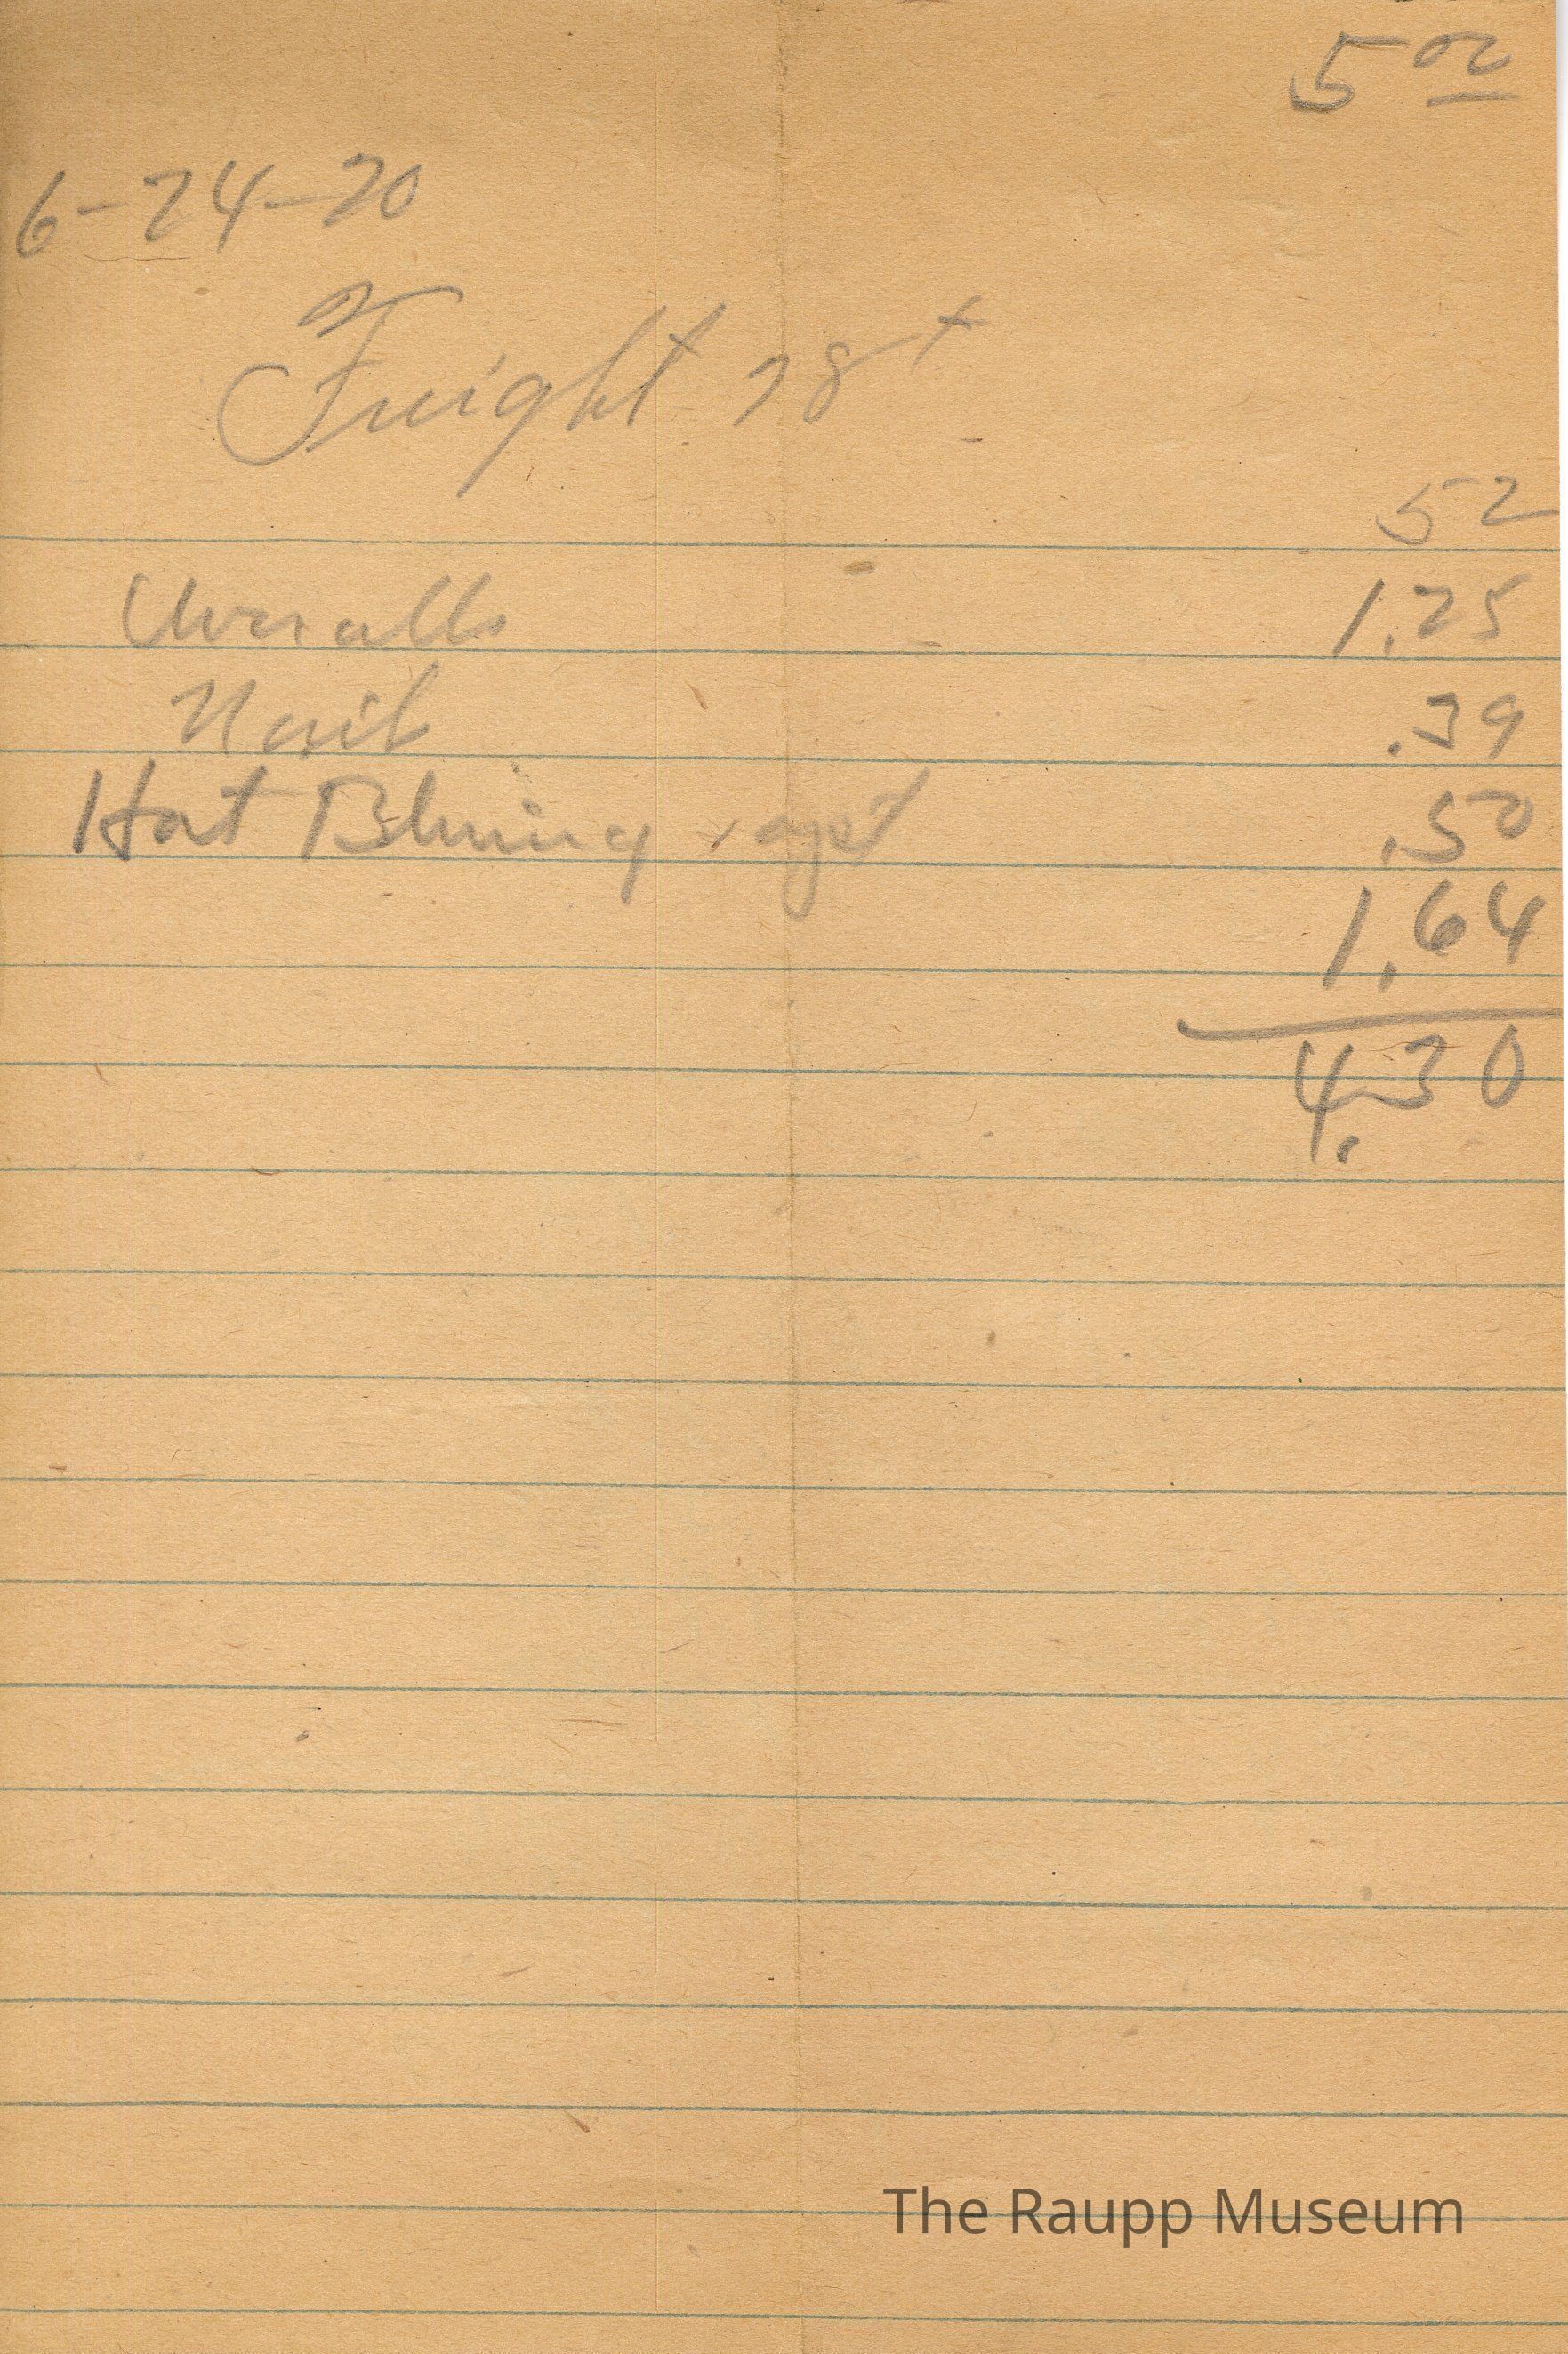 5 00
6-24-20
Freight
52
Overalls 1.25
.39
Hat Bluing .50
1.64
4.30
The Raupp Museum